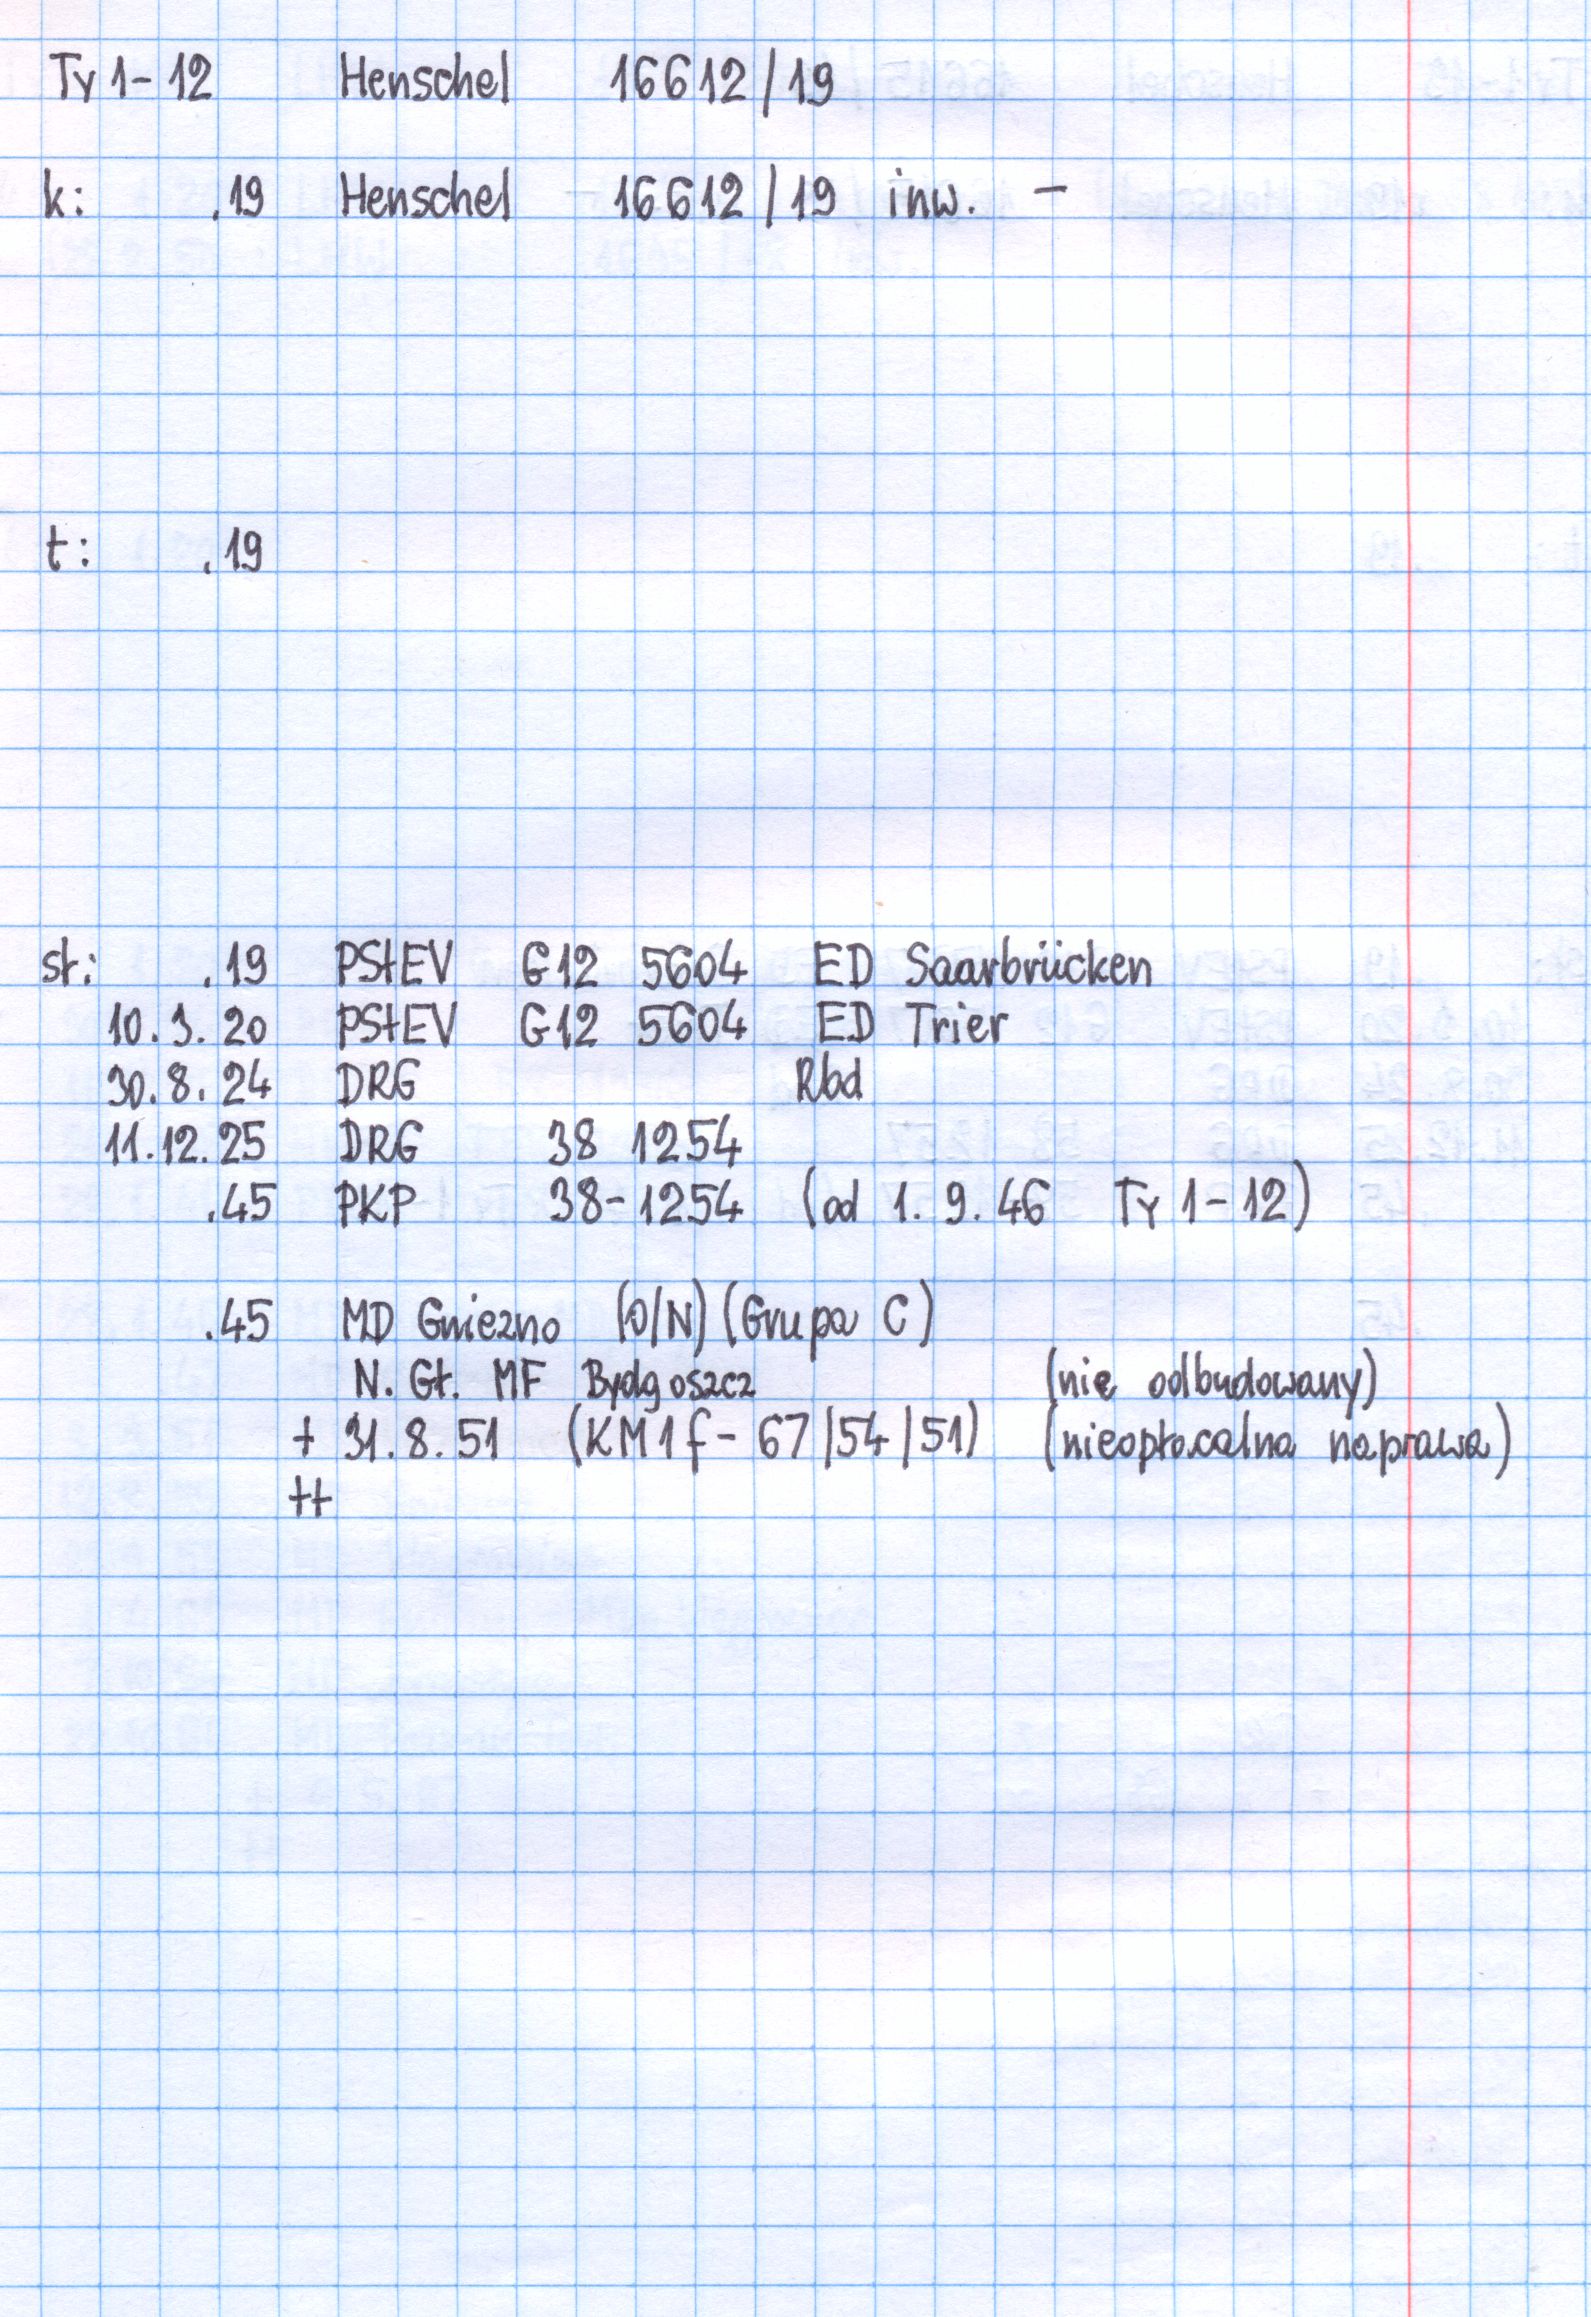 Ty 1-12 Henschel 16612/19
k: .19 Henschel 16612/19 inw. -
t: .19
st: .19 PStEV G12 5604 ED Saarbrücken
10.3.20 PStEV G12 5604 ED Trier
30.8.24 DRG Rbd
11.12.25 DRG 38 1254
.45 PKP 38-1254 (od 1.9.46 Ty 1-12)
.45 MD Gniezno (O/N) (Grupa C)
N. Gł. MF Bydgoszcz (nie odbudowany)
+ 31.8.51 (KM1f-67/54/51) (nieopłacalna naprawa)
++